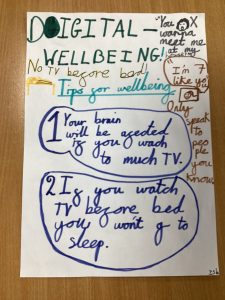 DIGITAL –
WELLBEING!
No TV before bed!
Tips for wellbeing
"You
wanna
meet me
at my
"I'm 7
like you"
Only
speak
to peo
ple
you
know
1 Your brain
will be afected
if you wach
to much TV.
2 If you watch
TV before bed
you wont g to
sleep.